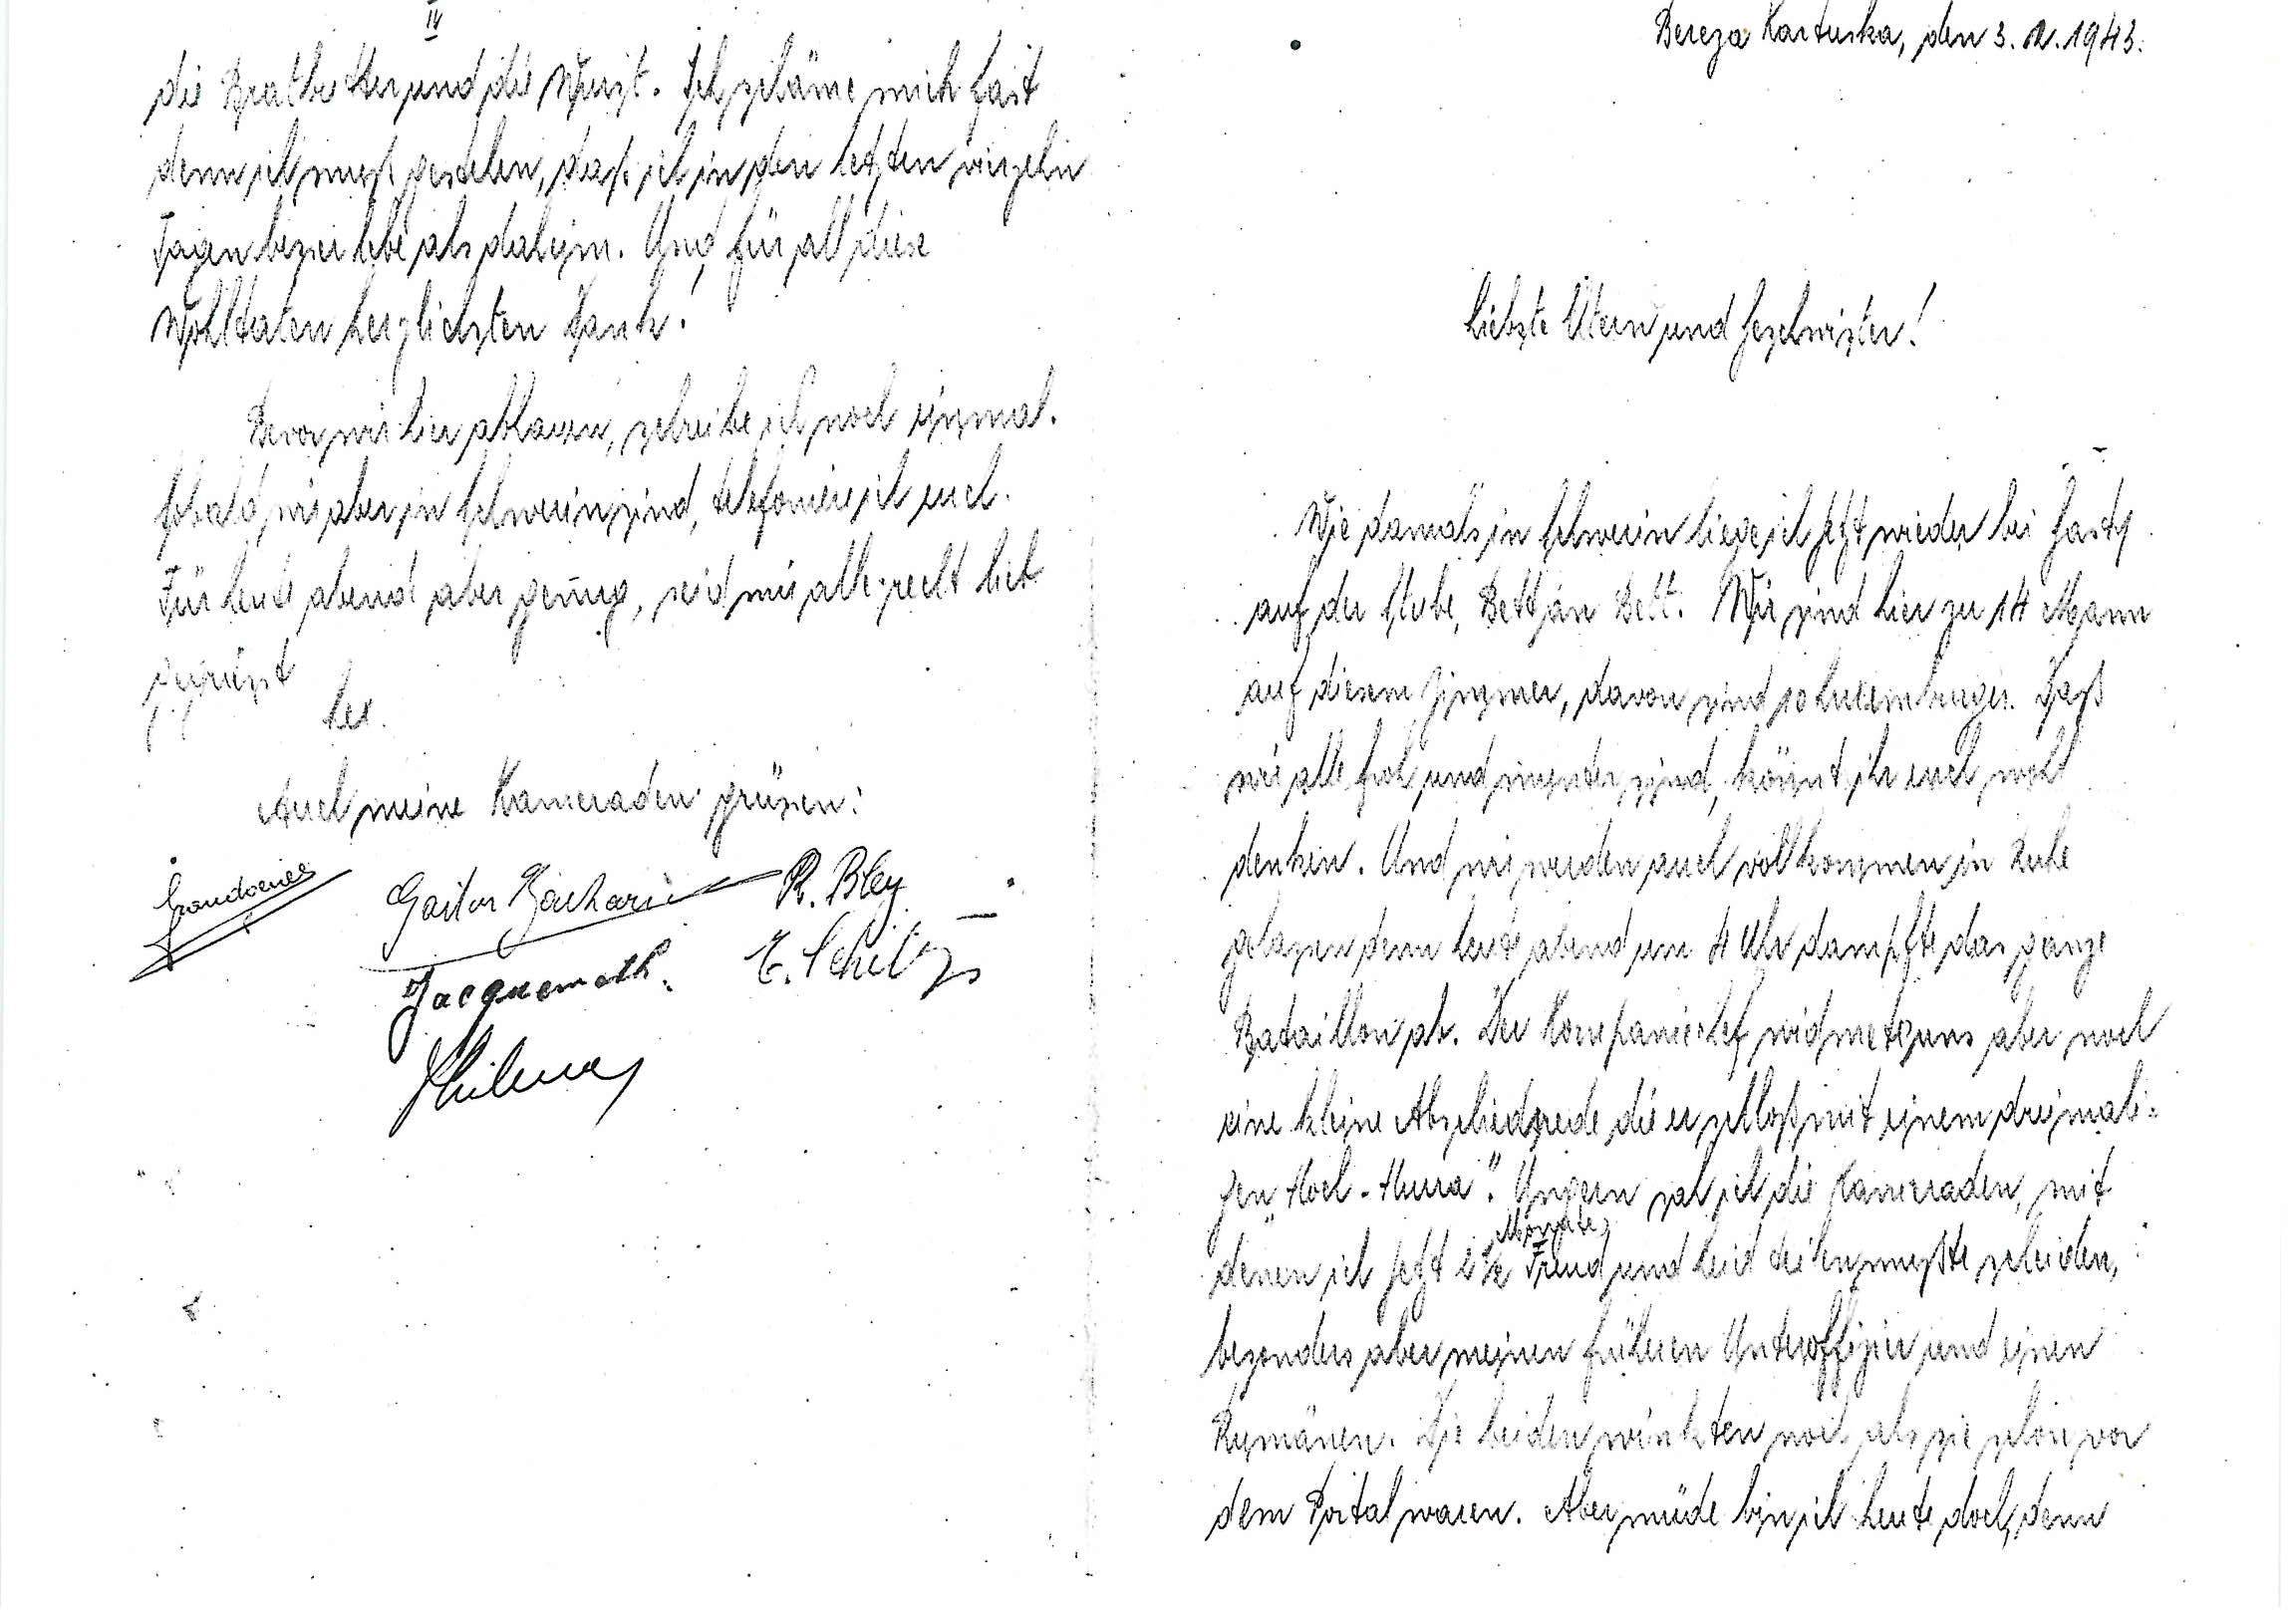 Bereza Kartuska, den 3. 12. 1943.
Liebste Eltern und Geschwister!
Wie damals in Schwerin liege ich jetzt wieder bei Gasty
auf der Stube, Bett an Bett. Wir sind hier zu 14 Mann
auf diesem Zimmer, davon sind 10 Luxemburger. Daß
wir alle froh und munter sind, könnt ihr euch wohl
denken. Und wir werden auch vollkommen in Ruhe
gelassen denn heute abend um 4 Uhr dampfte das ganze
Bataillon ab. Der Kompaniechef widmete uns aber noch
eine kleine Abschiedsrede die er schloß mit einem dreimali=
gen "Hoch-Hurra". Ungern sah ich die Kameraden, mit
denen ich jetzt 2½ Monate Freud und Leid teilen mußte scheiden,
besonders aber meinen früheren Unteroffizier und einen
Rumänen. Die beiden winkten noch als sie schon vor
dem Portal waren. Aber müde bin ich heute doch, denn
IV
die Bratbutter und die Wurst. Ich schäme mich fast
denn ich muß gestehen, daß ich in den letzten vierzehn
Tagen besser lebe als daheim. Und für all diese
Wohltaten herzlichsten Dank!
Bevor wir hier abhauen, schreibe ich noch einmal.
Sobald wir aber in Schwerin sind, telefoniere ich euch.
Für heute abend aber genug, seid mir alle recht lieb
gegrüsst
Lex.
Auch meine Kameraden grüssen:
Gaston Zacharias R. Bley
Jacquemoth. E. Schiltz